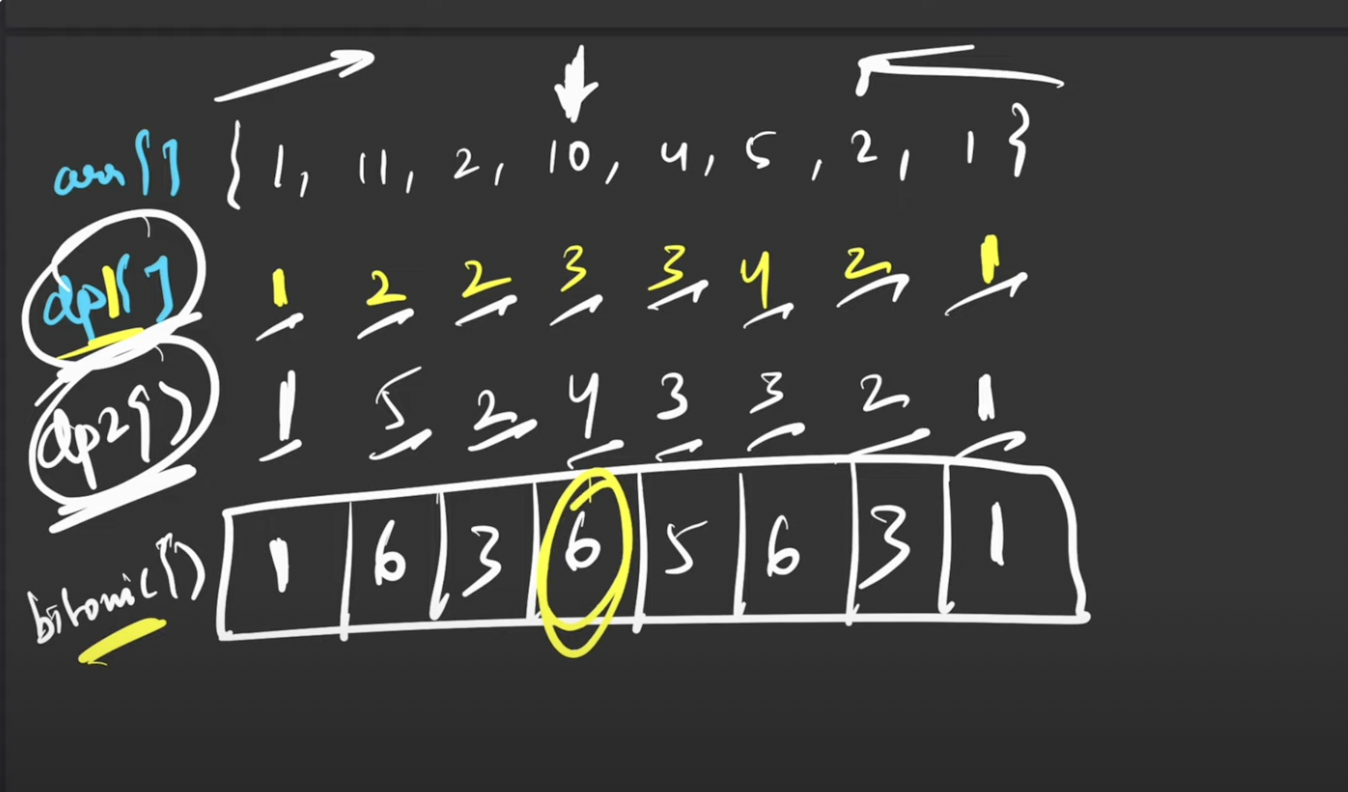 arr[] {1, 11, 2, 10, 4, 5, 2, 1}
dp1[] 1 2 2 3 3 4 2 1
dp2[] 1 5 2 4 3 3 2 1
bitonic[] 1 6 3 6 5 6 3 1